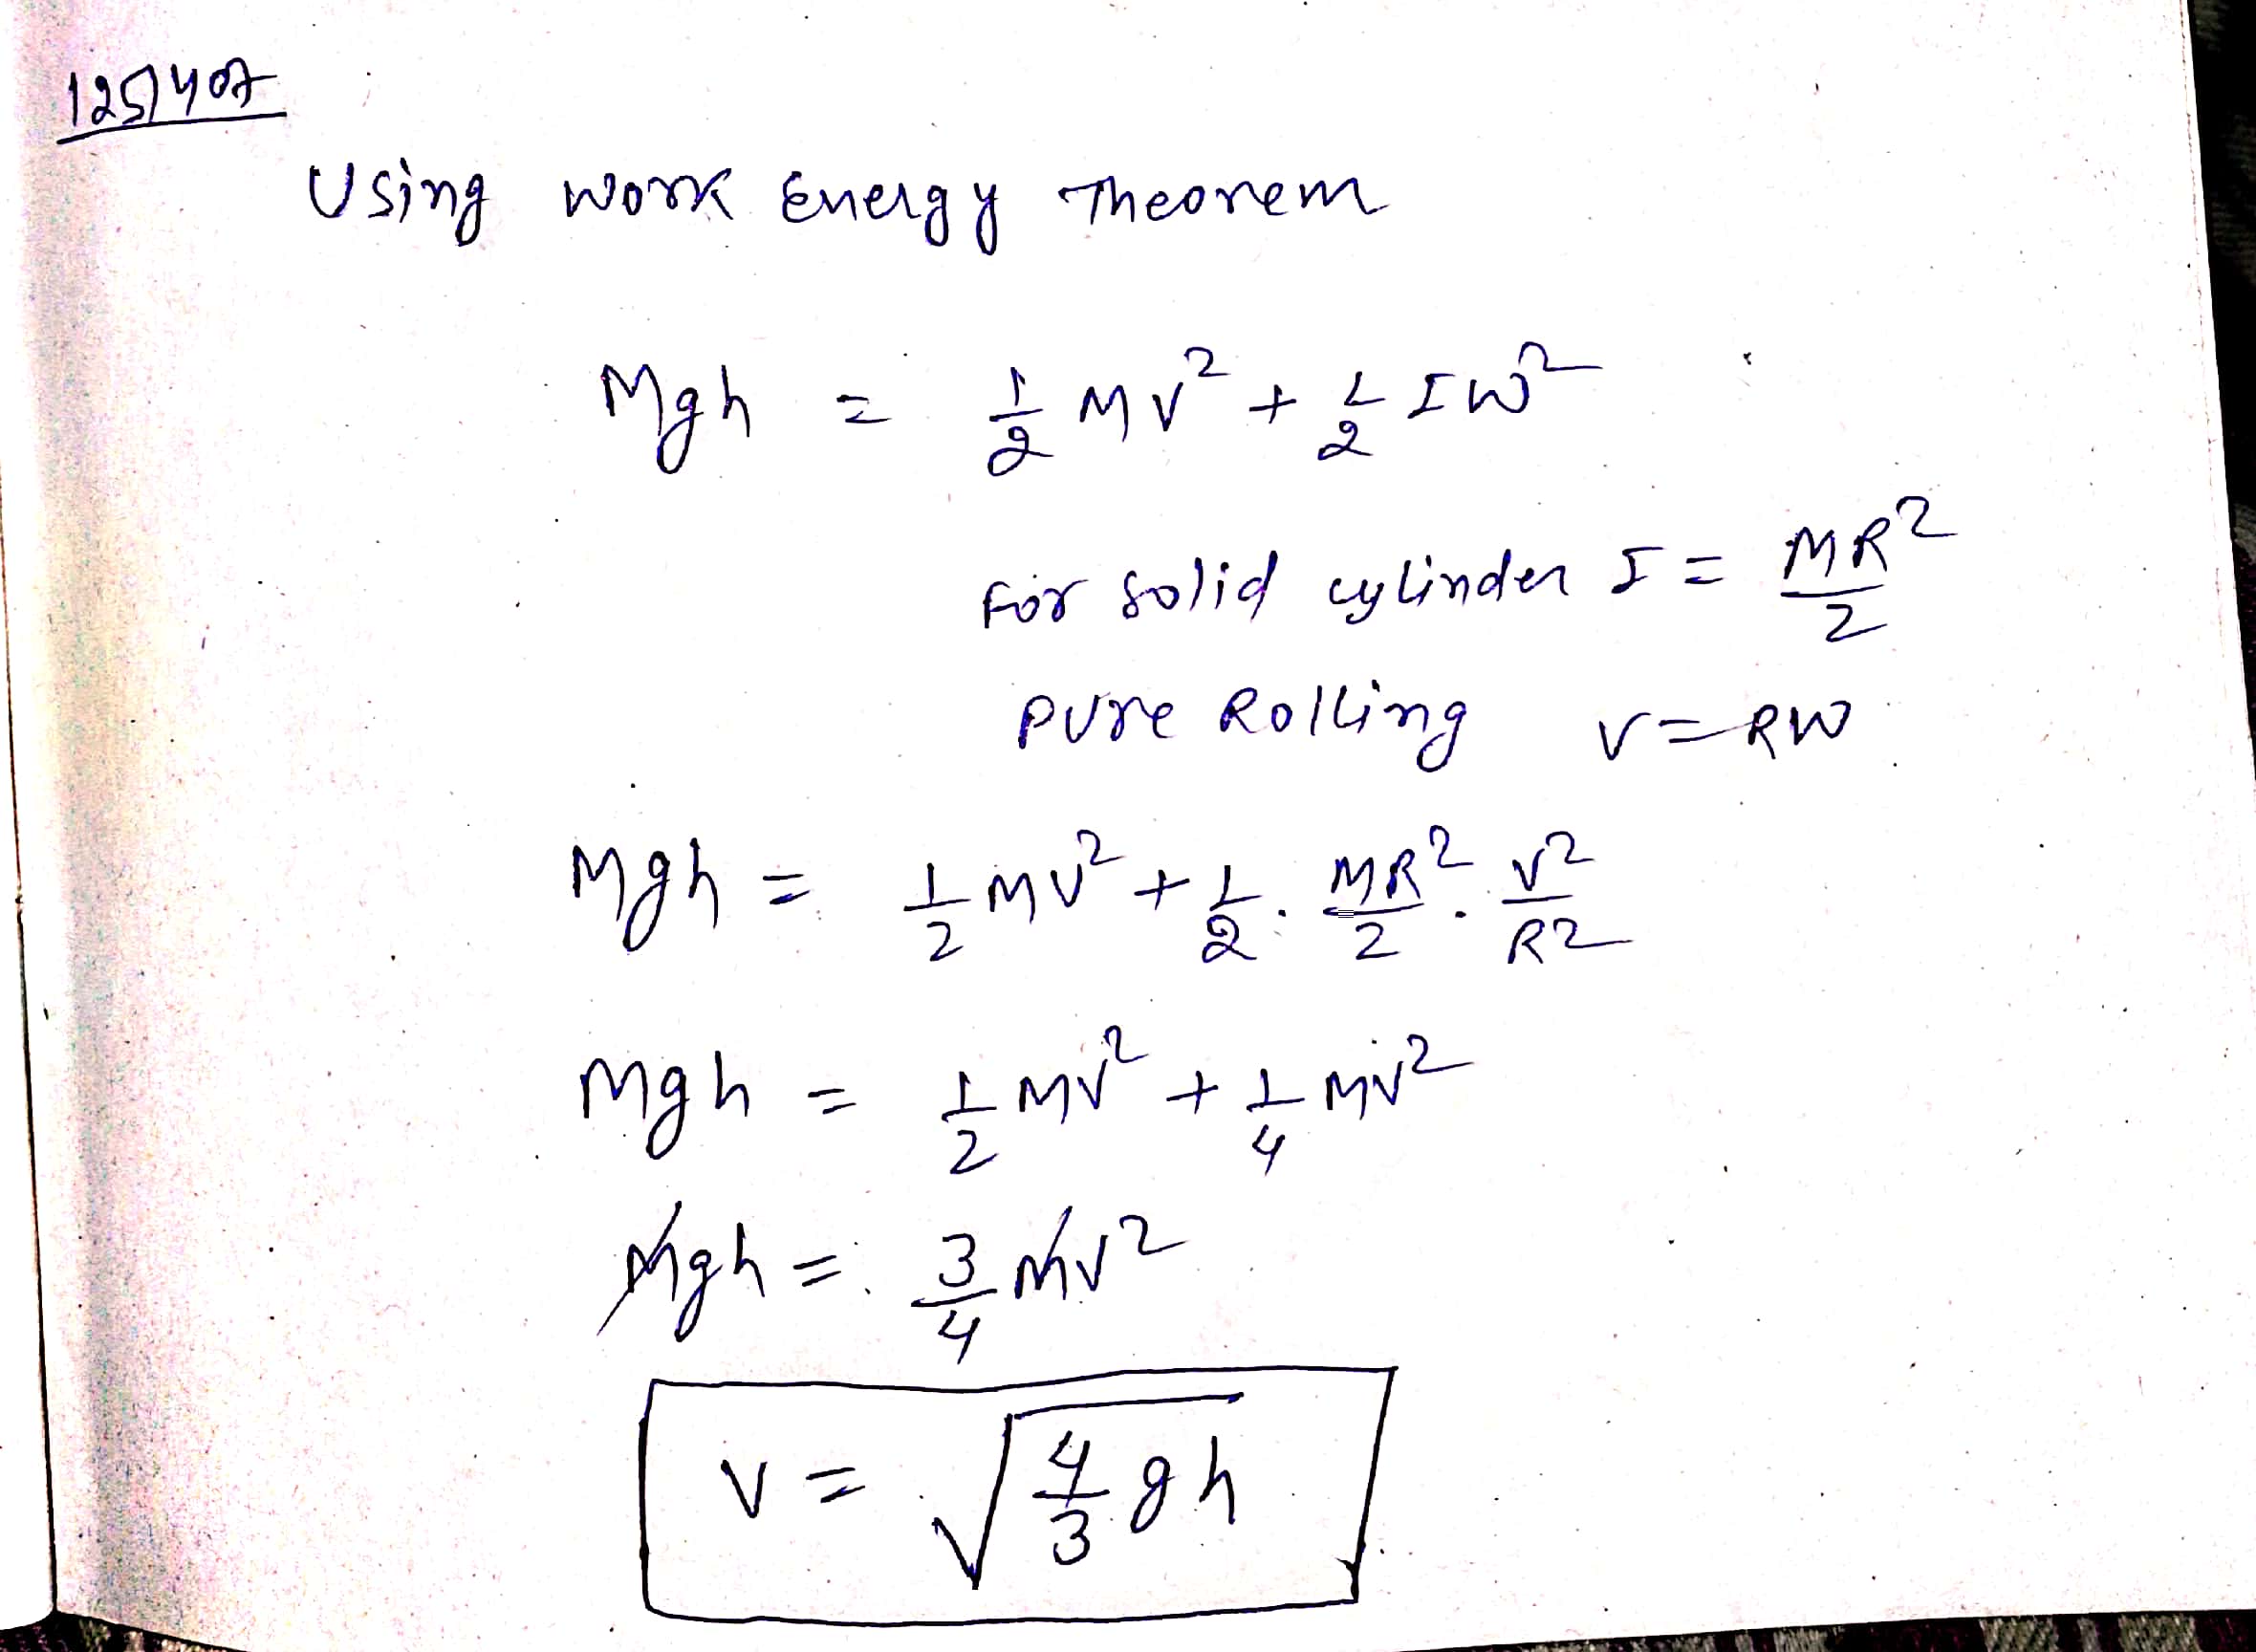 1251407
Using Work Energy Theorem
Mgh = 1/2 MV² + 1/2 IW²
For Solid cylinder I = MR²/2
Pure Rolling V = RW
Mgh = 1/2 MV² + 1/2 . MR²/2 . V²/R2
Mgh = 1/2 MV² + 1/4 MV²
Mgh = 3/4 MV²
V = √(4/3 gh)